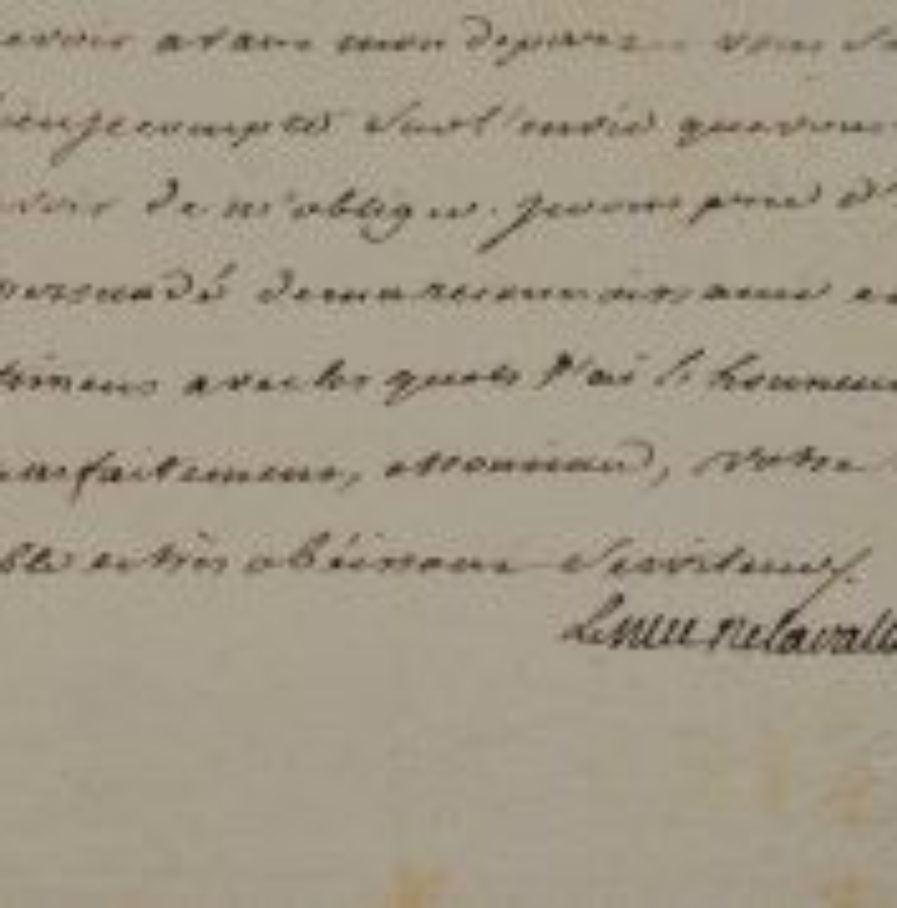 evoir avant mon depart vous
je compte sur l'envie que vous
voir de m'obliger. je vous prie d'
persuadé de ma reconnoissance et
timens avec les quels j'ai l'honneur
parfaitement, Monsieur, votre
ble et très obéissant Serviteur